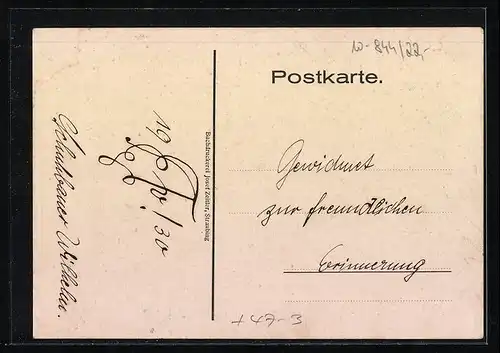 w-844/22,-
Postkarte.
Gewidmet
zur freundlichen
Erinnerung
Buchdruckerei Josef Zeitler, Straubing
19 /30
Wilhelm.
+47-3